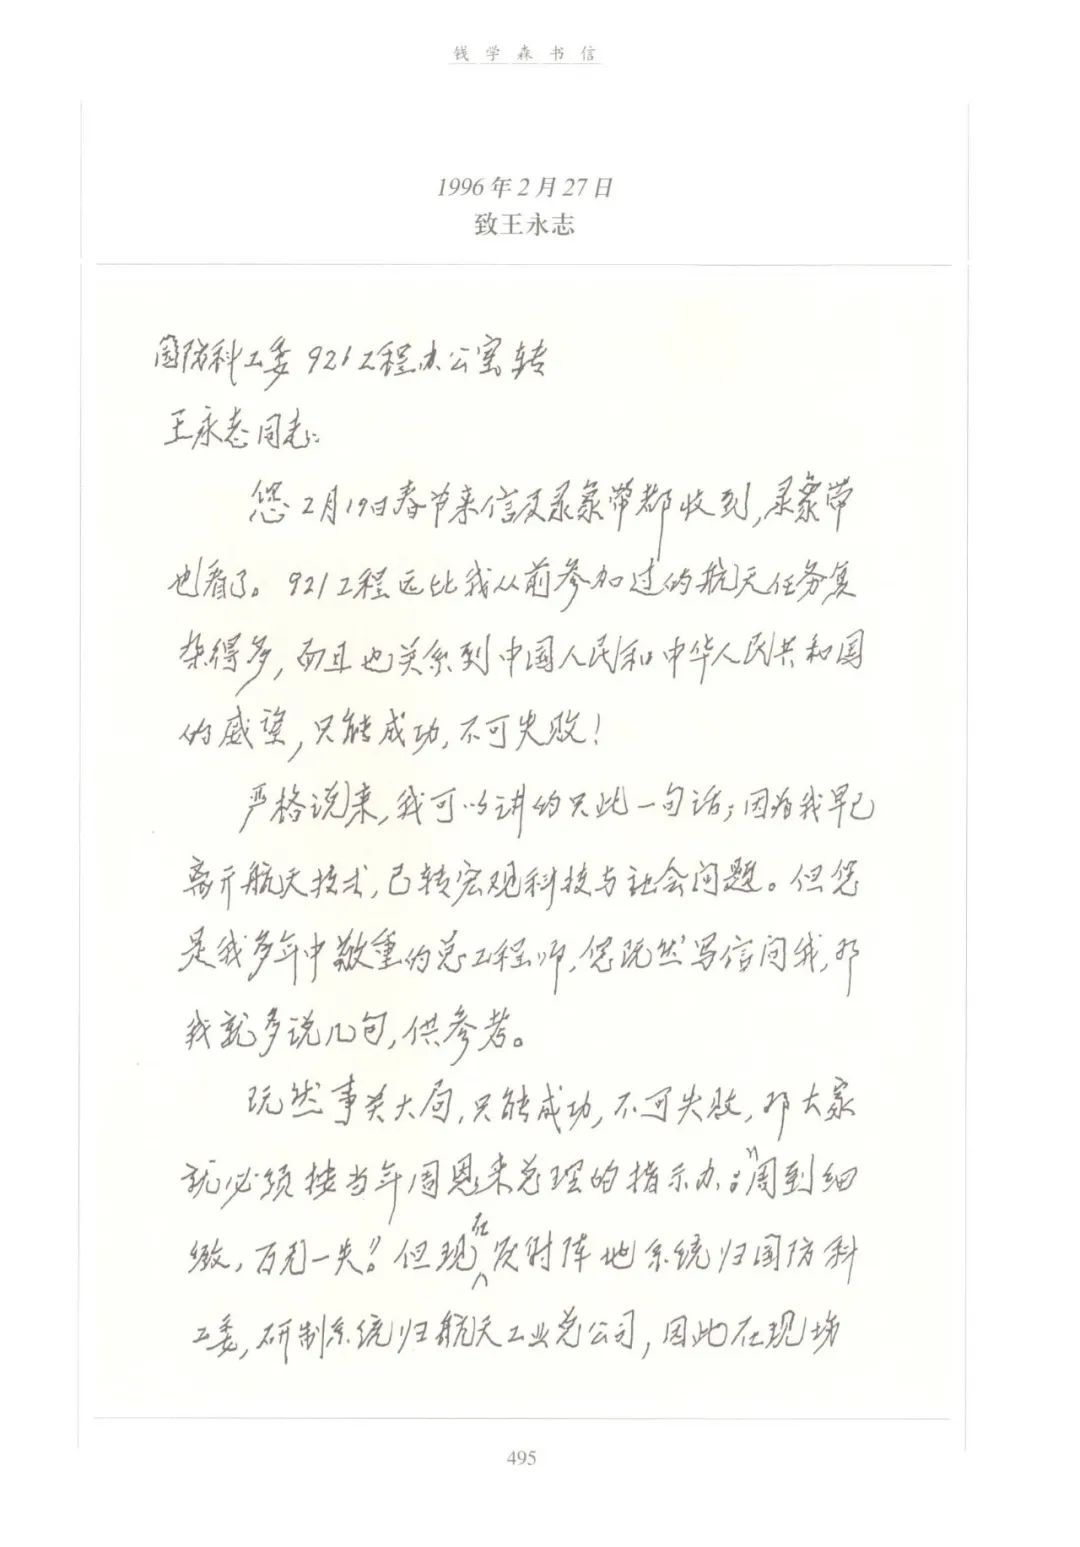 钱学森书信
1996年2月27日
致王永志
国防科工委921工程办公室转
王永志同志:
您2月19日春节来信及录象带都收到,录象带
也看了。921工程远比我从前参加过的航天任务复
杂得多,而且也关系到中国人民和中华人民共和国
的威望,只能成功,不可失败!
严格说来,我可以讲的只此一句话;因为我早已
离开航天技术,已转宏观科技与社会问题。但您
是我多年中敬重的总工程师,您既然写信问我,那
我就多说几句,供参考。
既然事关大局,只能成功,不可失败,那大家
就必须按当年周恩来总理的指示办:“周到细
致,万无一失”。但现在发射阵地系统归国防科
工委,研制系统归航天工业总公司,因此在现场
495